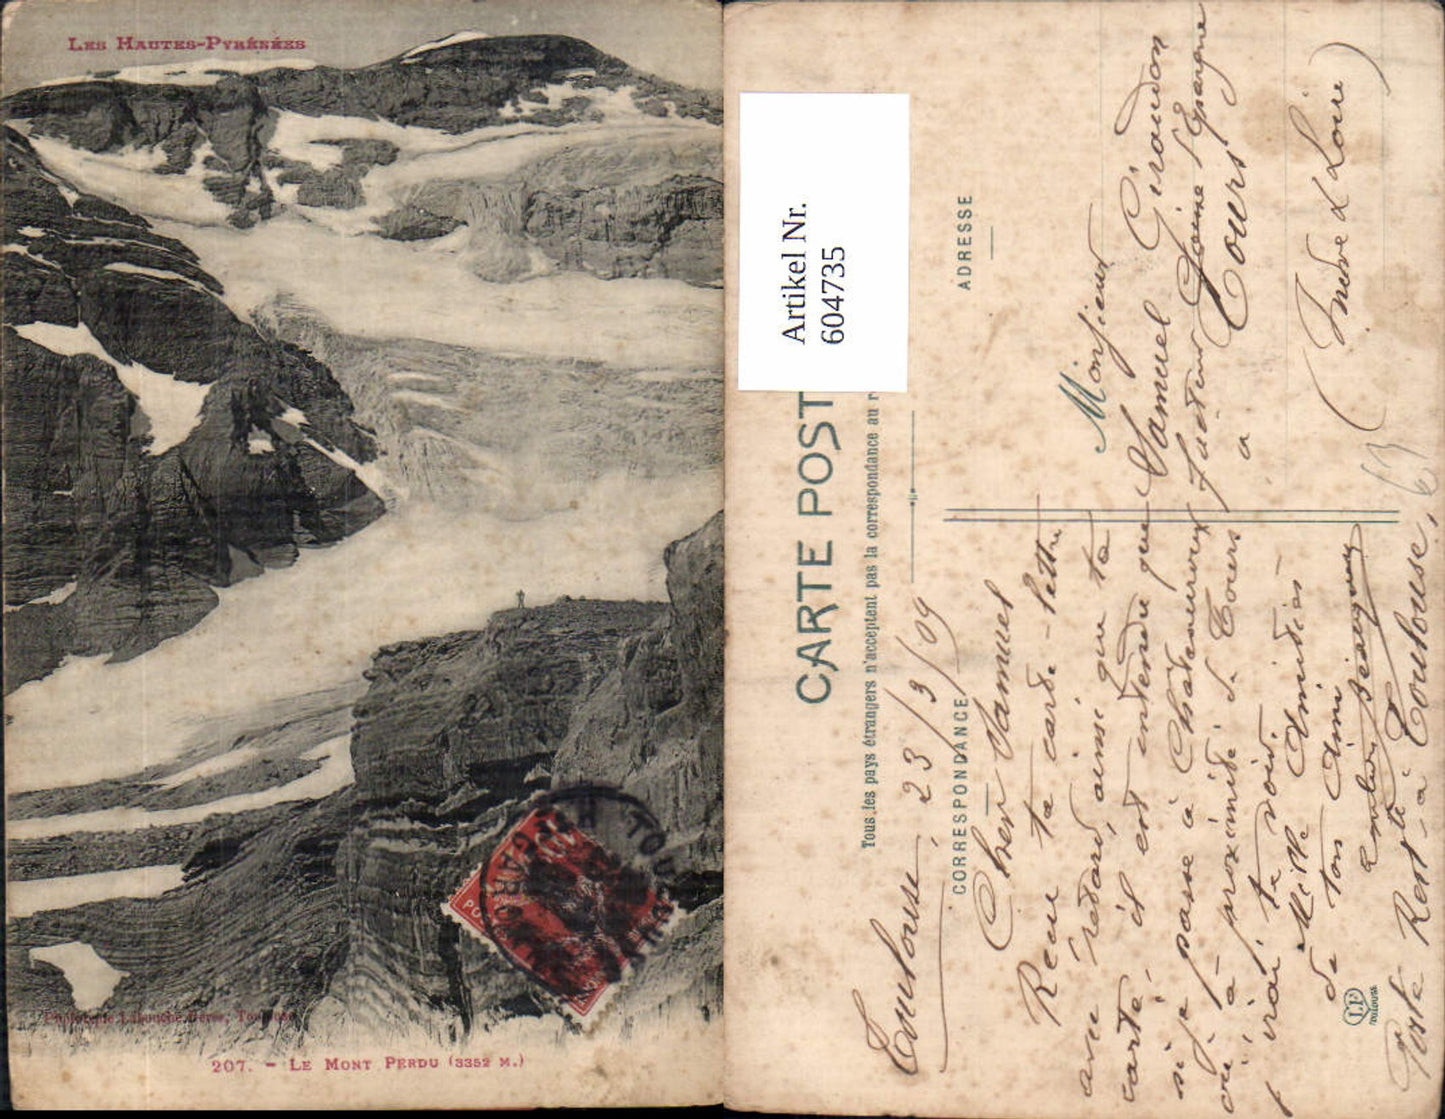 LES HAUTES-PYRÉNÉES
Phototypie Labouche frères, Toulouse
207. - LE MONT PERDU (3352 M.)
TOULOUSE
GARONNE
Artikel Nr.
604735
CARTE POST
Tous les pays étrangers n'acceptent pas la correspondance au r
CORRESPONDANCE
ADRESSE
Toulouse, 23/3/09
Cher Samuel
Reçu ta carte-lettre
avec retard, ainsi que ta
carte, il est entendu que
si je passe à Chateauroux
où à proximité de Tours
j'irai te voir.
Mille Amitiés
de ton Ami
Poste Restte à Toulouse.
Monsieur
Samuel Giraudon
facteur Caisse d'Epargne
à Tours
(Indre & Loire)
63
LF
TOULOUSE